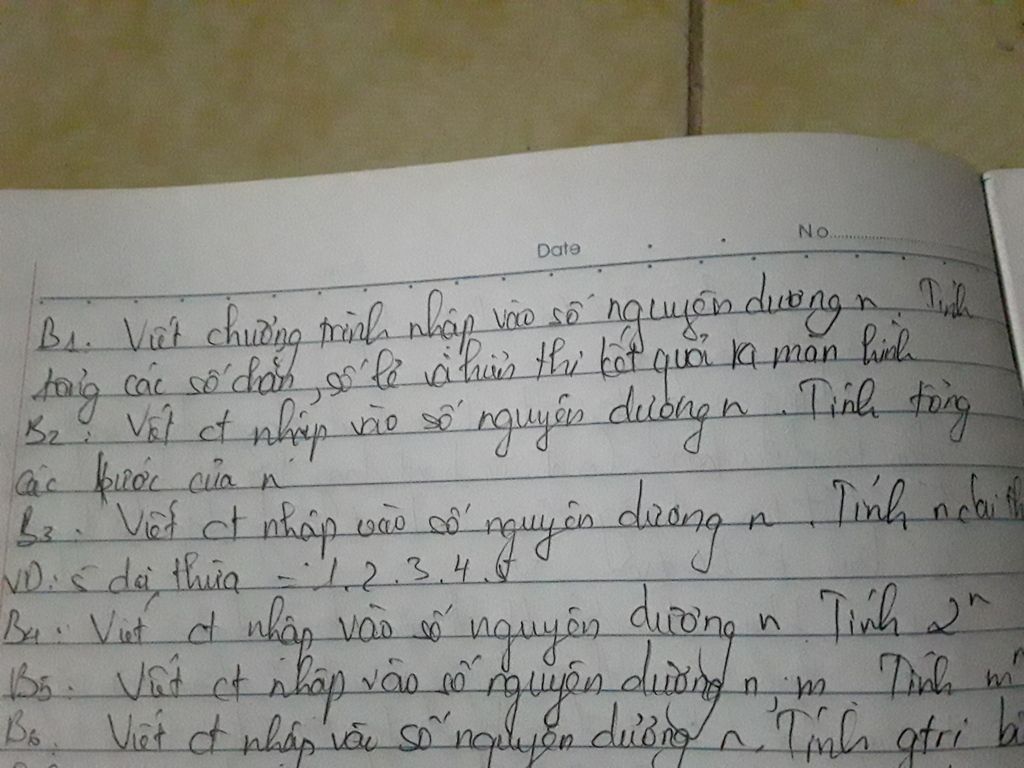 Date No
B1. Viết chương trình nhập vào số nguyên dương n. Tính
tổng các số chẵn, số lẻ và hiển thị kết quả ra màn hình
B2: Viết ct nhập vào số nguyên dương n. Tính tổng
các ước của n
B3. Viết ct nhập vào số nguyên dương n. Tính n đai
VD: 5 đai thừa = 1.2.3.4.5
B4: Viết ct nhập vào số nguyên dương n Tính 2^n
B5. Viết ct nhập vào số nguyên dương n, m Tính m^n
B6. Viết ct nhập vào số nguyên dương n. Tính gtri